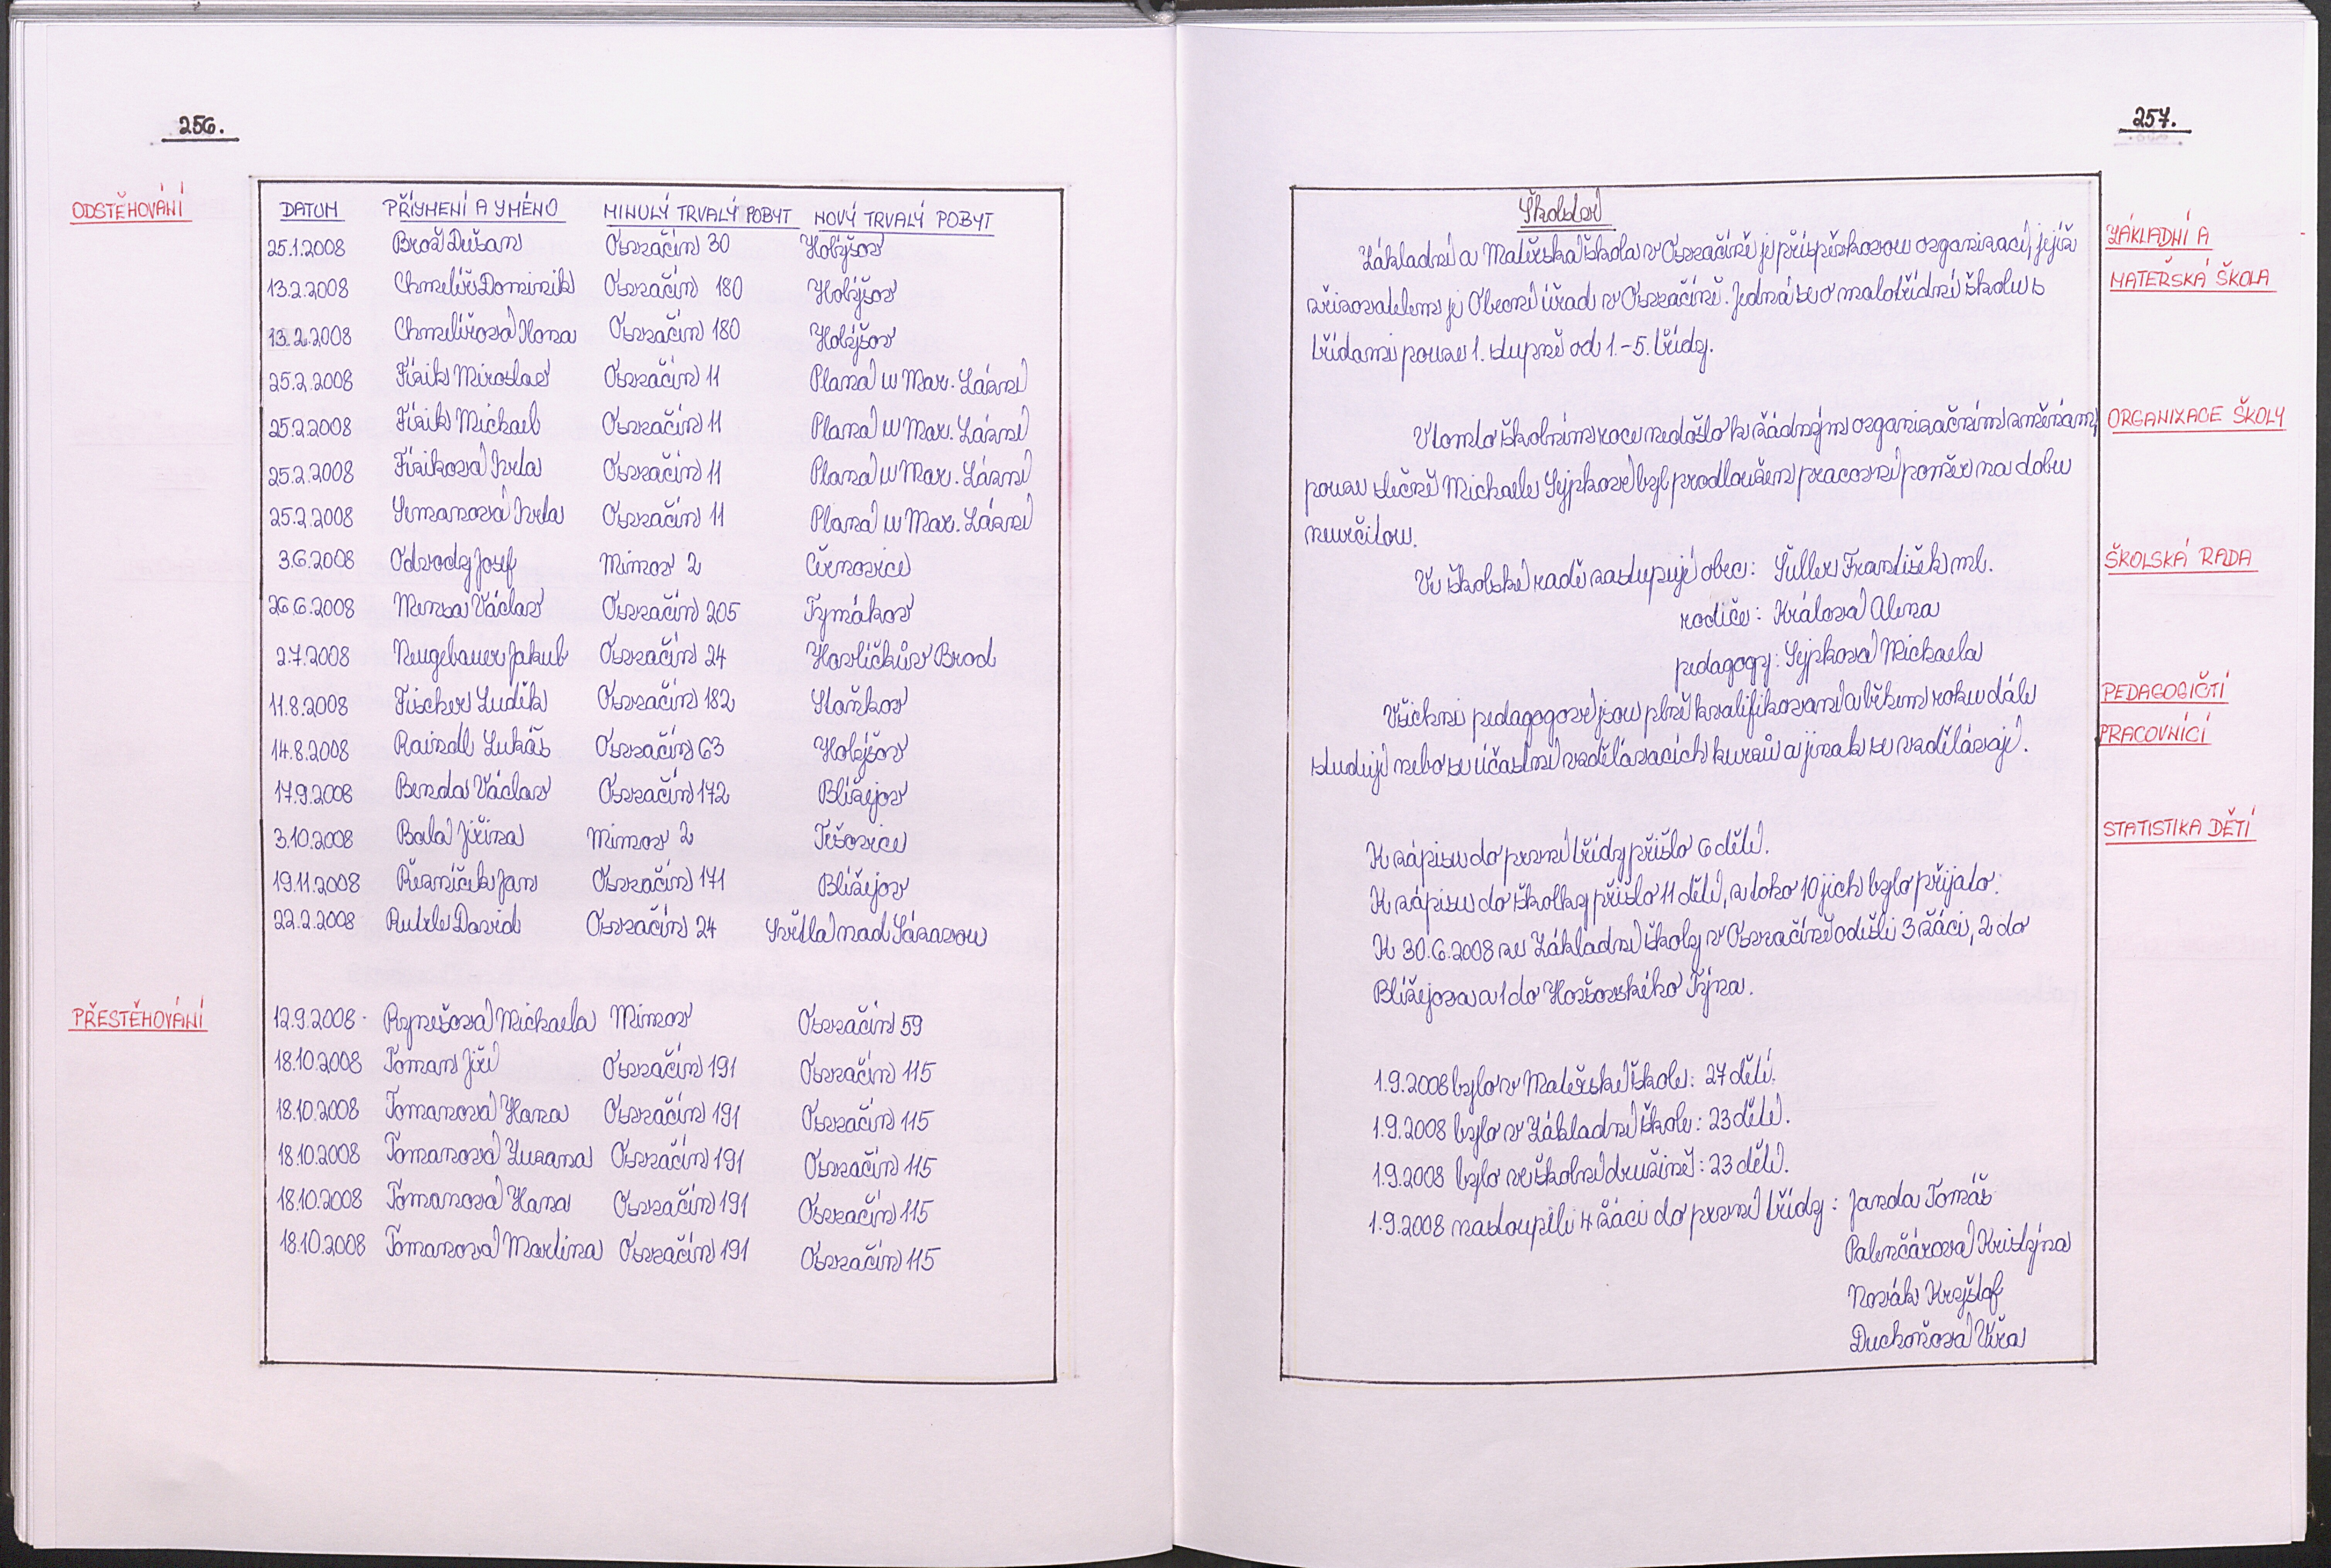 256.
ODSTĚHOVÁNÍ
DATUM PŘÍJMENÍ A JMÉNO MINULÝ TRVALÝ POBYT NOVÝ TRVALÝ POBYT
25.1.2008 Brož Dušan Osvračín 30 Holýšov
13.2.2008 Chmelíř Dominik Osvračín 180 Holýšov
13.2.2008 Chmelířová Ilona Osvračín 180 Holýšov
25.2.2008 Fizik Miroslav Osvračín 11 Planá u Mar. Lázní
25.2.2008 Fizik Michael Osvračín 11 Planá u Mar. Lázní
25.2.2008 Fiziková Iveta Osvračín 11 Planá u Mar. Lázní
25.2.2008 Semanová Iveta Osvračín 11 Planá u Mar. Lázní
3.6.2008 Odvody Josef Mimov 2 Černovice
26.6.2008 Václav Osvračín 205 Tymákov
2.7.2008 Neugebauer Jakub Osvračín 24 Havlíčkův Brod
11.8.2008 Fischer Luděk Osvračín 182 Staňkov
14.8.2008 Raindl Lukáš Osvračín 63 Holýšov
17.9.2008 Benda Václav Osvračín 172 Blížejov
3.10.2008 Balá Jiřina Mimov 2 Těšovice
19.11.2008 Řezníček Jan Osvračín 171 Blížejov
22.2.2008 David Osvračín 24 Světlá nad Sázavou
PŘESTĚHOVÁNÍ
12.9.2008 Rynešová Michaela Mimov Osvračín 59
18.10.2008 Toman Jiří Osvračín 191 Osvračín 115
18.10.2008 Tomanová Hana Osvračín 191 Osvračín 115
18.10.2008 Tomanová Zuzana Osvračín 191 Osvračín 115
18.10.2008 Tomanová Hana Osvračín 191 Osvračín 115
18.10.2008 Tomanová Martina Osvračín 191 Osvračín 115
257.
Školství
ZÁKLADNÍ A
MATEŘSKÁ ŠKOLA
Základní a Mateřská škola v Osvračíně je příspěvkovou organizací, jejíž
zřizovatelem je Obecní úřad v Osvračíně. Jedná se o malotřídní školu s
třídami pouze 1. stupně od 1.-5. třídy.
ORGANIZACE ŠKOLY
V tomto školním roce nedošlo k žádným organizačním změnám,
pouze slečně Michaele Sýpkové byl prodloužen pracovní poměr na dobu
neurčitou.
ŠKOLSKÁ RADA
Ve školské radě zastupují obec: Šuller František ml.
rodiče: Králová Alena
pedagogy: Sýpková Michaela
PEDAGOGIČTÍ
PRACOVNÍCI
Všichni pedagogové jsou plně kvalifikovaní a během roku dále
studují nebo se účastní vzdělávacích kurzů a jinak se vzdělávají.
STATISTIKA DĚTÍ
K zápisu do první třídy přišlo 6 dětí.
K zápisu do školky přišlo 11 dětí, z toho 10 jich bylo přijato.
K 30.6.2008 ze Základní školy v Osvračíně odešli 3 žáci, 2 do
Blížejova a 1 do Horšovského Týna.
1.9.2008 bylo v Mateřské škole: 27 dětí.
1.9.2008 bylo v Základní škole: 23 dětí.
1.9.2008 bylo ve školní družině: 23 dětí.
1.9.2008 nastoupili 4 žáci do první třídy: Janda Tomáš
Palenčárová Kristýna
Novák Kryštof
Duchoňová Věra